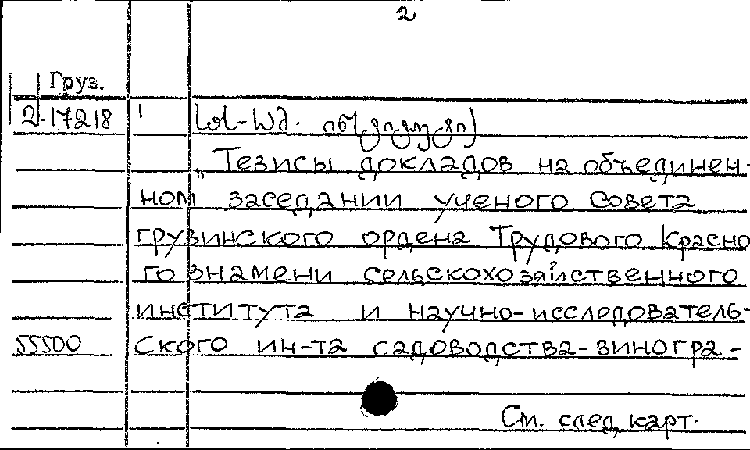 2
Груз.
2.17218
Тезисы докладов на объединен-
ном заседании ученого Совета
грузинского ордена Трудового Красно
го знамени сельскохозяйственного
института и научно-исследователь-
55500 ского ин-та садоводства-виногра-
См. след. карт.